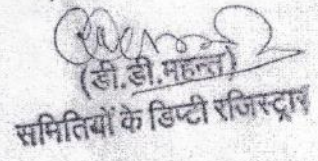 (डी.डी.महन्त)
समितियों के डिप्टी रजिस्ट्रार